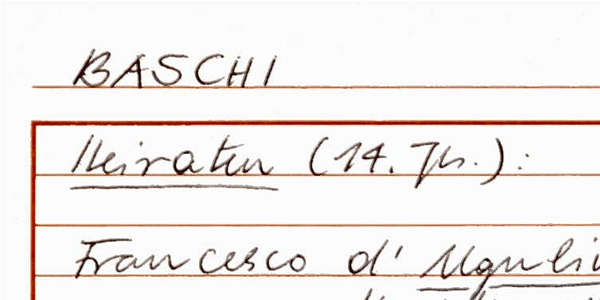 BASCHI
Heiraten (14. Jh.):
Francesco d'